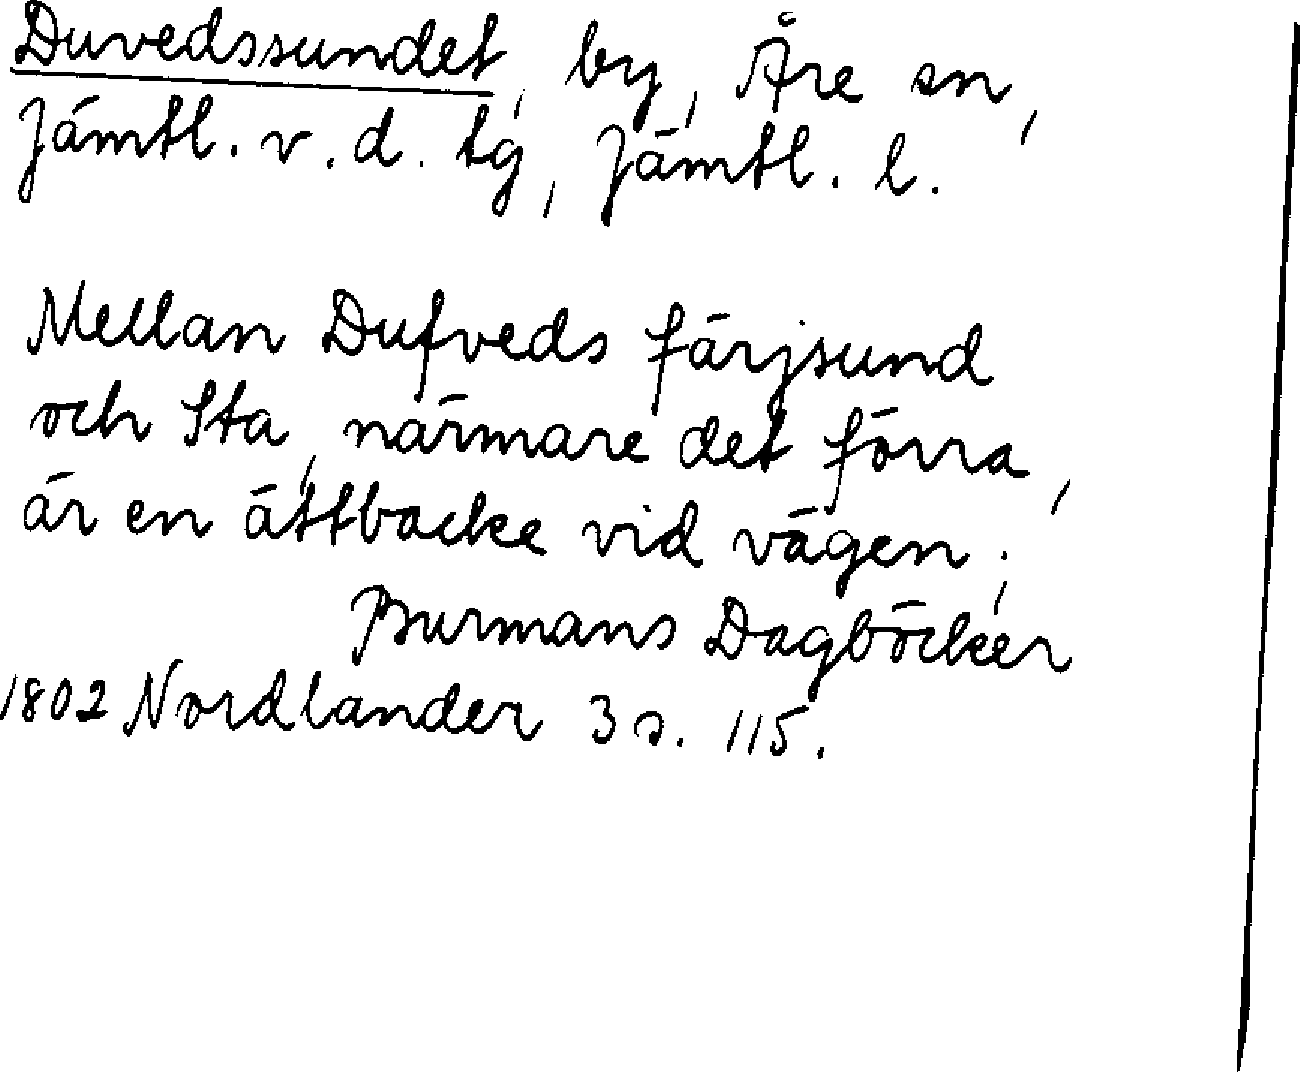 Duvedssundet, by, Åre sn,
Jämtl. v. d. tg, Jämtl. l.
Mellan Dufveds färjsund
och Sta, närmare det förra,
är en ättbacke vid vägen;
Burmans Dagböcker
1802 Nordlander 3 s. 115.